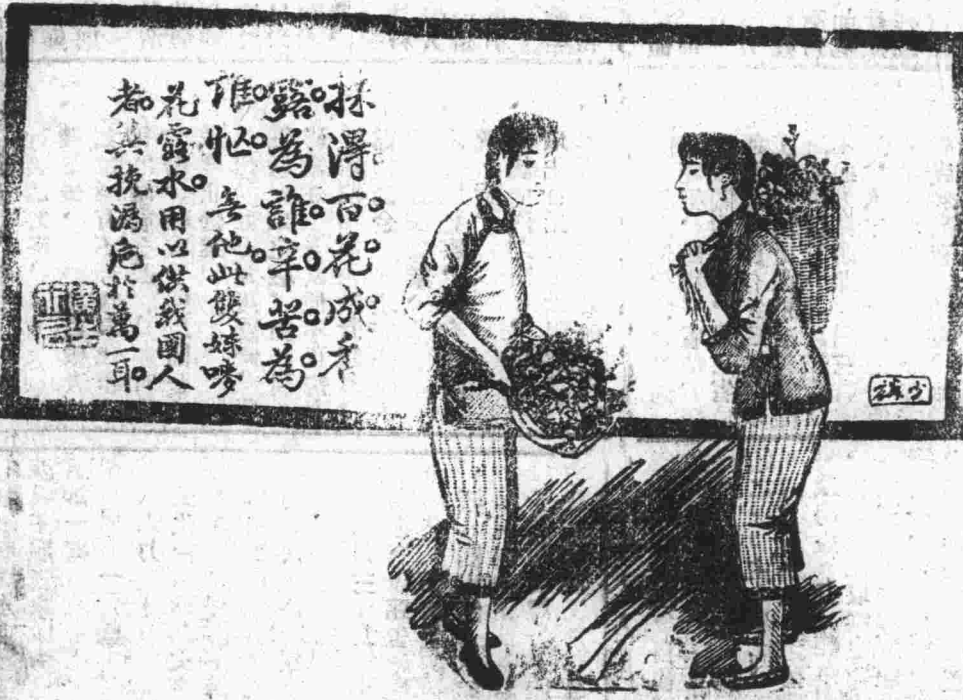 採得百花。成香
露。為誰。辛。苦。為。
誰。忙。無他。此雙妹嘜
花露水。用以供我國人
者。冀挽漏卮於萬一耳。